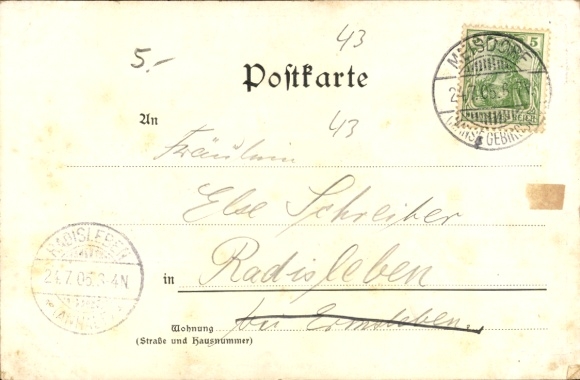 43
5.-
5
MEISDORF
Postkarte
24.7.05.
An
43
Fräulein
Else Schreiber
RADISLEBEN
24.7.05.3-4N
in Radisleben
bei Ermsleben.
Wohnung
(Straße und Hausnummer)